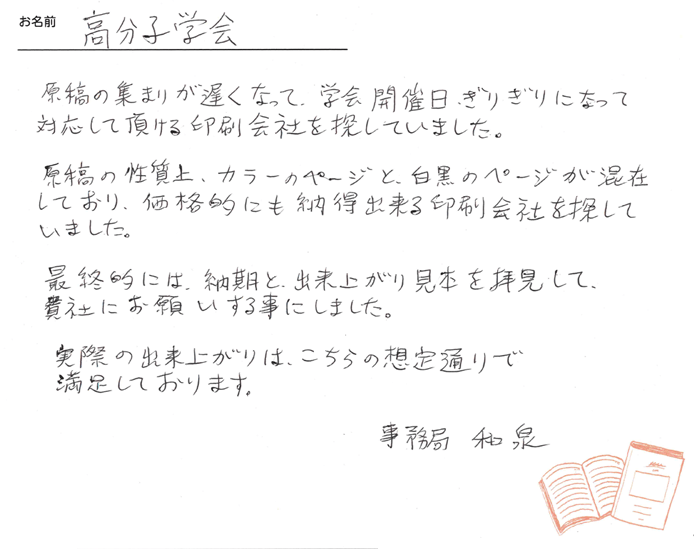 お名前 高分子学会
原稿の集まりが遅くなって、学会開催日ぎりぎりになって
対応して頂ける印刷会社を探していました。
原稿の性質上、カラーのページと、白黒のページが混在
しており、価格的にも納得出来る印刷会社を探して
いました。
最終的には、納期と、出来上がり見本を拝見して、
貴社にお願いする事にしました。
実際の出来上がりは、こちらの想定通りで
満足しております。
事務局 和泉